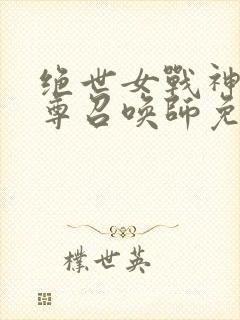 绝世女戰神
尊召唤師免
樸世英